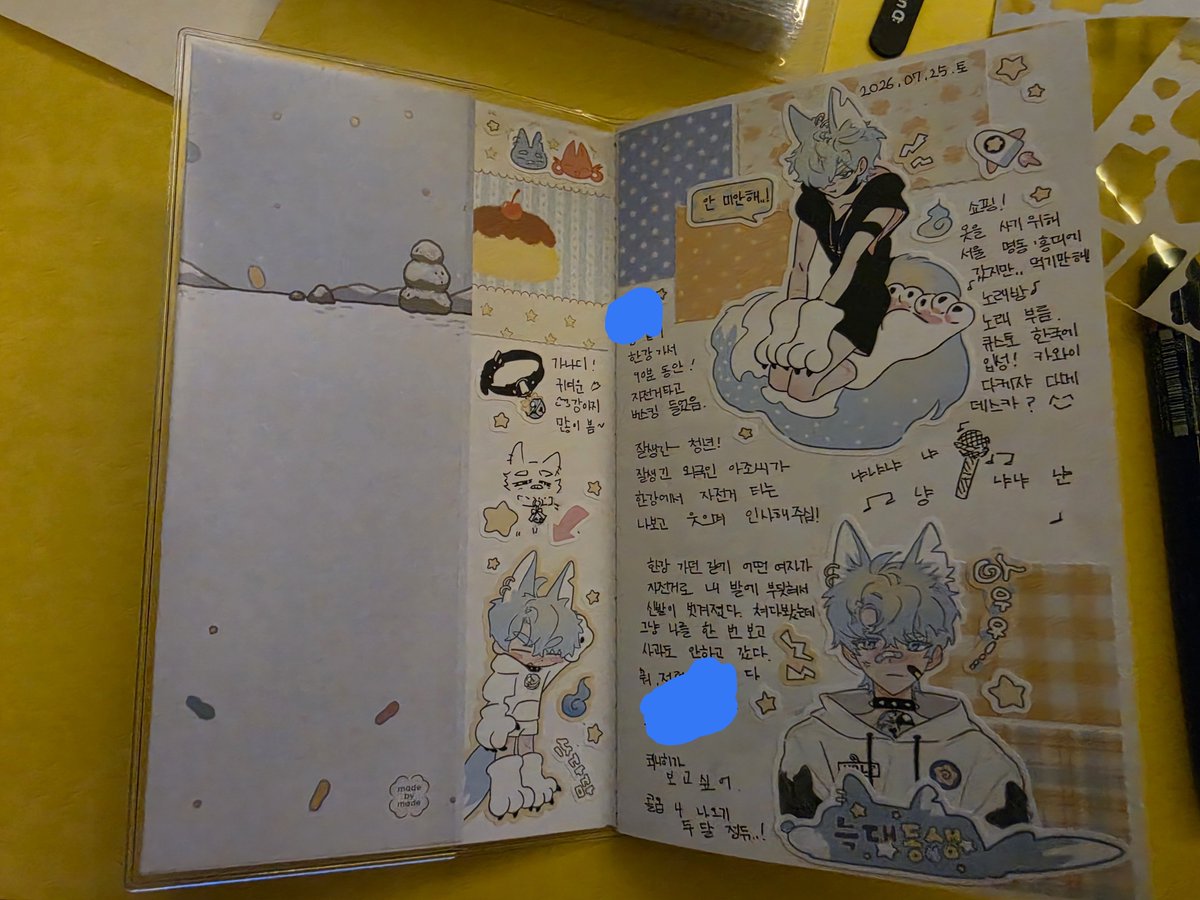 made
by
made
가나디!
귀여운
강아지
많이 봄~
늑대담
2026.07.25.토
안 미안해..!
쇼핑!
옷을 사기 위해
서울 명동·홍대에
갔지만.. 먹기만해
♪노래방♪
노래 부름.
큐스토 한국에
입성! 카와이
다케쟈 다메
데스카?
한강 가서
90분 동안!
자전거 타고
버스킹 들었음.
잘생긴 청년!
잘생긴 외국인 아조씨가
한강에서 자전거 타는
나보고 웃으며 인사해주심!
냐냐냐 냐
냥 냐냐 냔
한강 가던 길에 어떤 여자가
자전거로 내 발에 부딪혀서
신발이 벗겨졌다. 쳐다봤는데
그냥 나를 한 번 보고
사과도 안하고 갔다.
다
보고싶어.
4 나오기
두 달 전듀..!
늑대동생